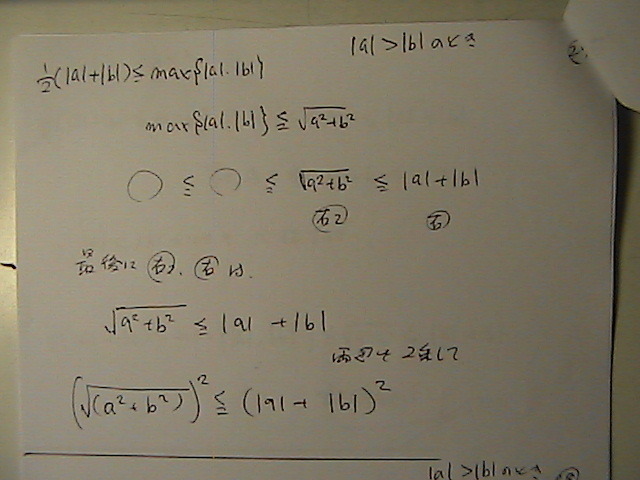 |a|>|b| のとき
½(|a|+|b|)≦max{|a|.|b|}
max{|a|.|b|}≦√a²+b²
○ ≦ ○ ≦ √a²+b² ≦ |a|+|b|
右2 右
最後に 右2. 右 は.
√a²+b² ≦ |a|+|b|
両辺を 2乗して
(√(a²+b²))² ≦ (|a|+|b|)²
|a|>|b| のとき